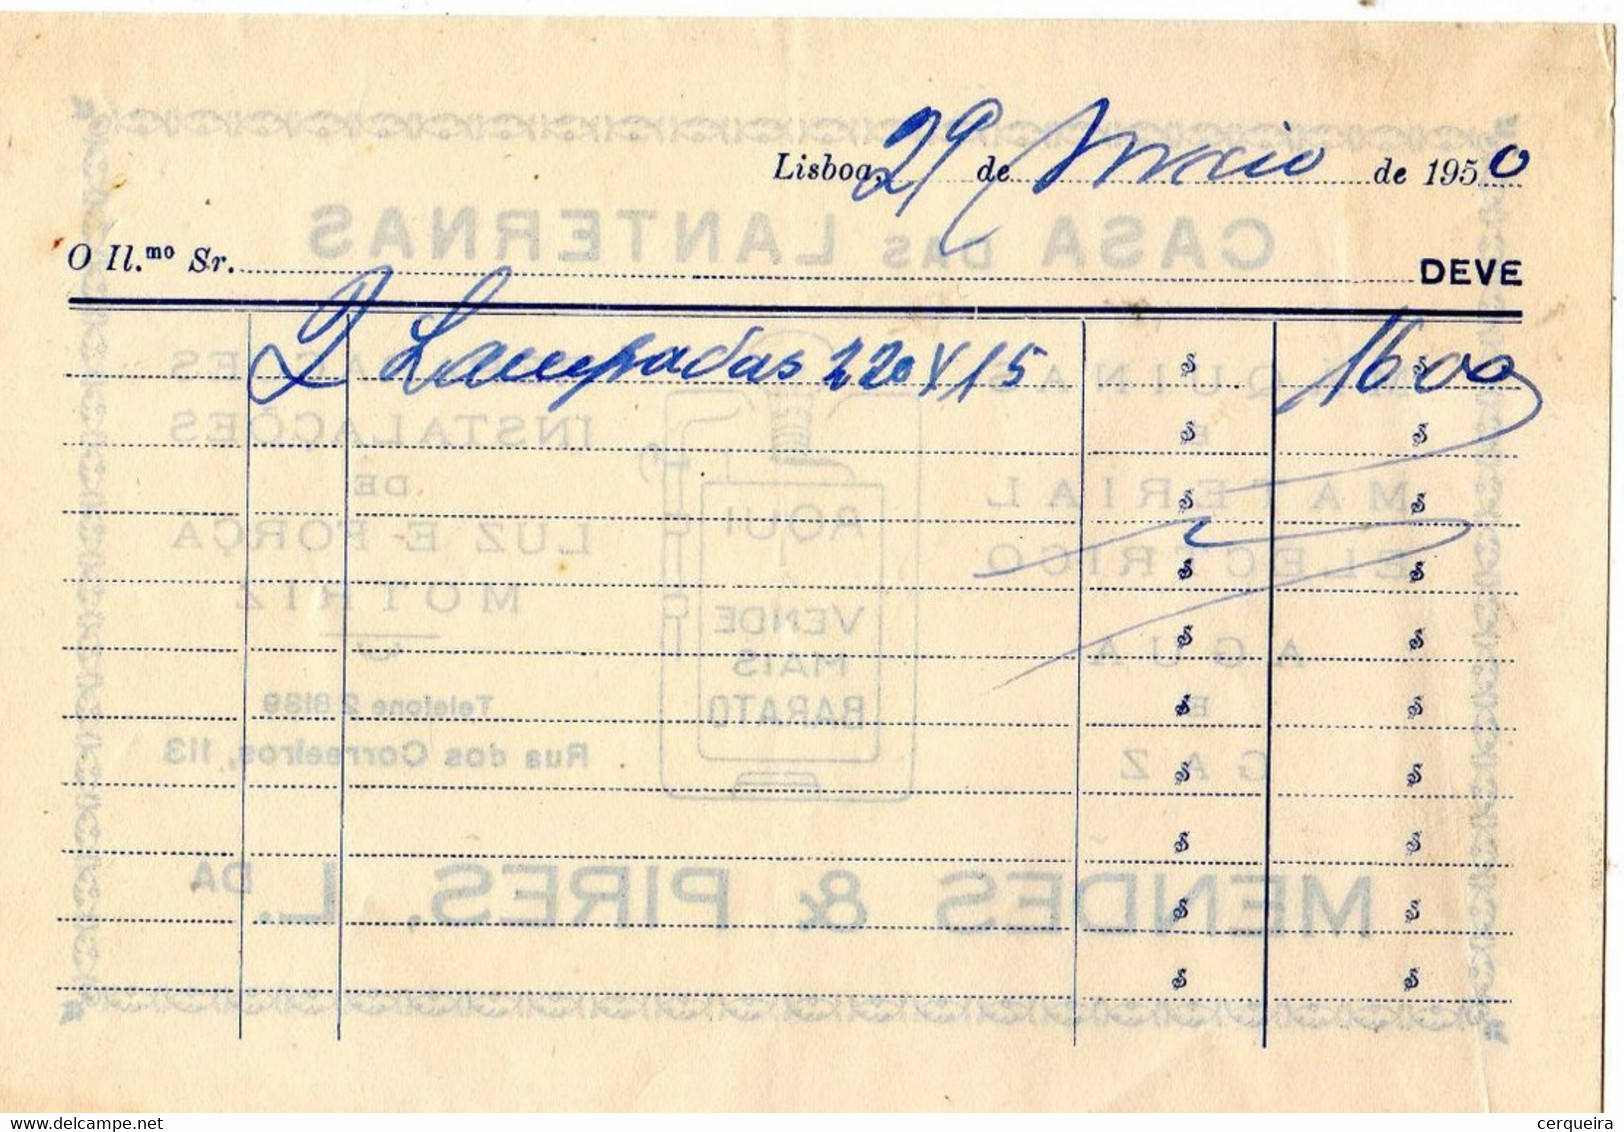 Lisboa, 29 de Maio de 1950
O Il.mo Sr. DEVE
2 Lampadas 220 x 15 $ 16$00
$ $
$ $
$ $
$ $
$ $
$ $
$ $
$ $
$ $
CASA DAS LANTERNAS
MAQUINAS
E
MATERIAL
ELECTRICO
AGUA
E
GAZ
AQUI
VENDE
MAIS
BARATO
INSTALAÇÕES
DE
LUZ E FORÇA
MOTRIZ
Telefone 2 8189
Rua dos Correeiros, 113
MENDES & PIRES, L.DA
cerqueira